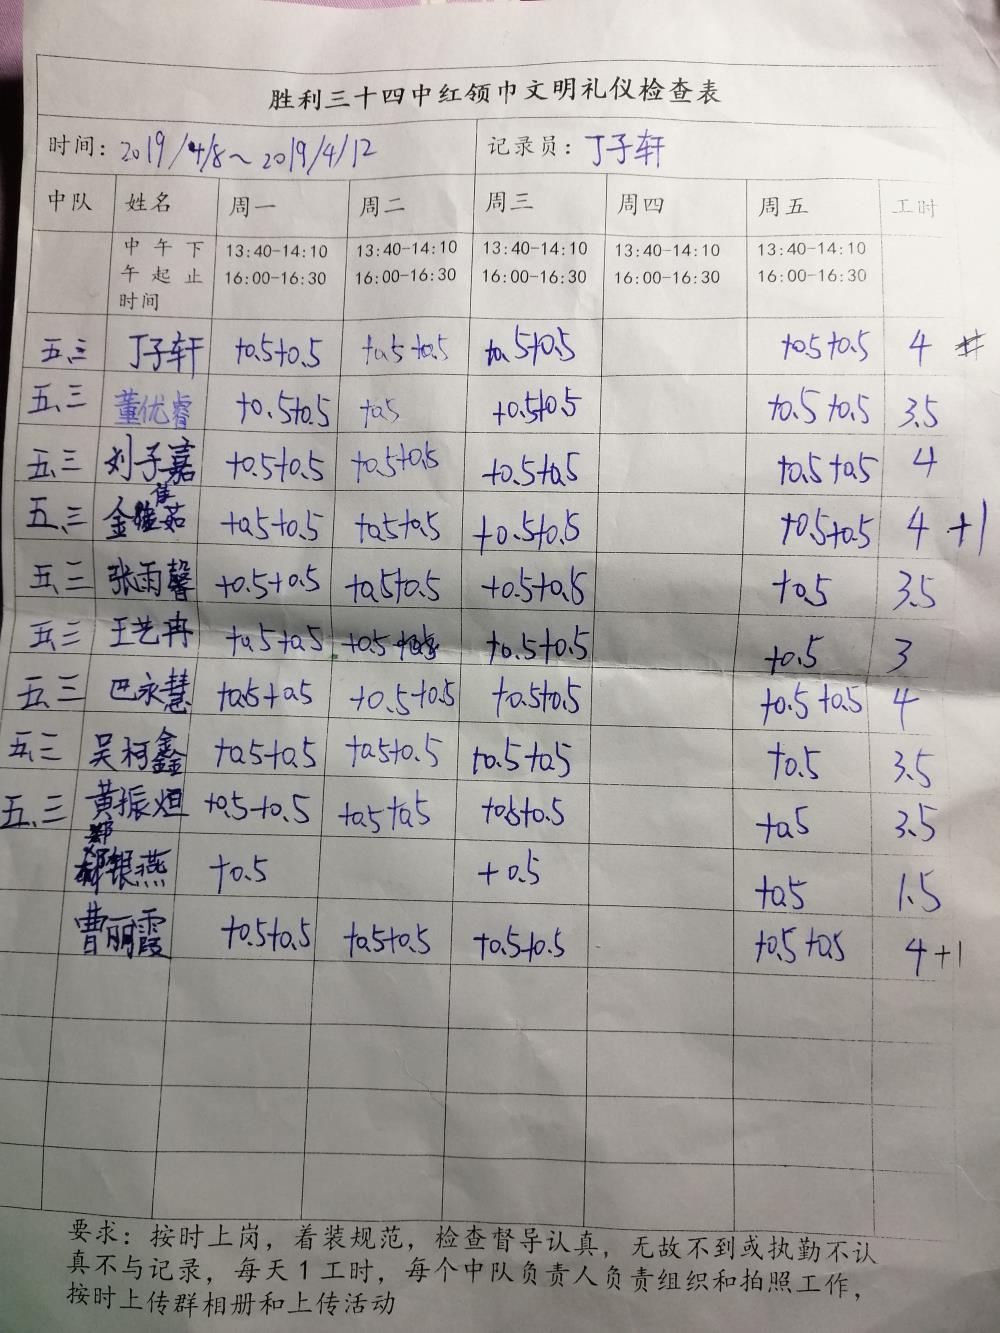 胜利三十四中红领巾文明礼仪检查表
时间：2019/4/8～2019/4/12 记录员：丁子轩
中队 姓名 周一 周二 周三 周四 周五 工时
中午下 13:40-14:10 13:40-14:10 13:40-14:10 13:40-14:10 13:40-14:10
午起止 16:00-16:30 16:00-16:30 16:00-16:30 16:00-16:30 16:00-16:30
时间
五、三 丁子轩 +0.5+0.5 +0.5+0.5 +0.5+0.5 +0.5+0.5 4
五、三 董优睿 +0.5+0.5 +0.5 +0.5+0.5 +0.5+0.5 3.5
五、三 刘子嘉 +0.5+0.5 +0.5+0.5 +0.5+0.5 +0.5+0.5 4
五、三 金佳茹 +0.5+0.5 +0.5+0.5 +0.5+0.5 +0.5+0.5 4 +1
五、三 张雨馨 +0.5+0.5 +0.5+0.5 +0.5+0.5 +0.5 3.5
五、三 王艺冉 +0.5+0.5 +0.5 +0.5+0.5 +0.5 3
五、三 巴永慧 +0.5+0.5 +0.5+0.5 +0.5+0.5 +0.5+0.5 4
五、三 吴柯鑫 +0.5+0.5 +0.5+0.5 +0.5+0.5 +0.5 3.5
五、三 黄振烜 +0.5+0.5 +0.5+0.5 +0.5+0.5 +0.5 3.5
郑银燕 +0.5 +0.5 +0.5 1.5
曹丽霞 +0.5+0.5 +0.5+0.5 +0.5+0.5 +0.5+0.5 4+1
要求：按时上岗，着装规范，检查督导认真，无故不到或执勤不认
真不与记录，每天1工时，每个中队负责人负责组织和拍照工作，
按时上传群相册和上传活动